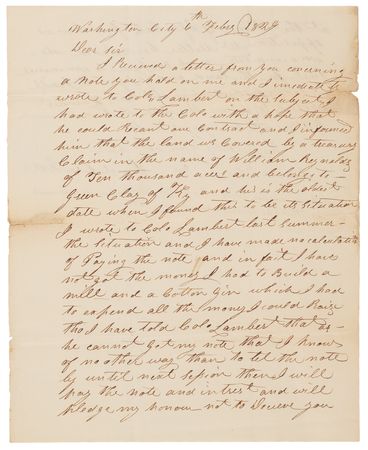 Washington City 6th Feby 1829
Dear Sir
I Received a letter from you concerning
a Note you hold on me and I imediatly
wrote to Colo Lambert on the Subject, I
had wrote to the Colo with a hope that
he could Recant our Contract and I informed
him that the land is Covered by a treasury
Claim in the name of William Reynolds
of Ten thousand acres and belongs to
Green Clay of Ky and his is the oldest
date when I found this to be its Situation
I wrote to Colo Lambert last Summer
the Situation and I have made no calculation
of Paying the note and in fact I have
not got the money I had to Build a
mill and a Cotton Gin which I had
to expend all the money I could Raise
tho I have told Colo Lambert that as
he cannot Got my note that I know
of no other way than to let the note
by until next session then I will
pay the note and intrest and will
pledge my honour not to Deceve you